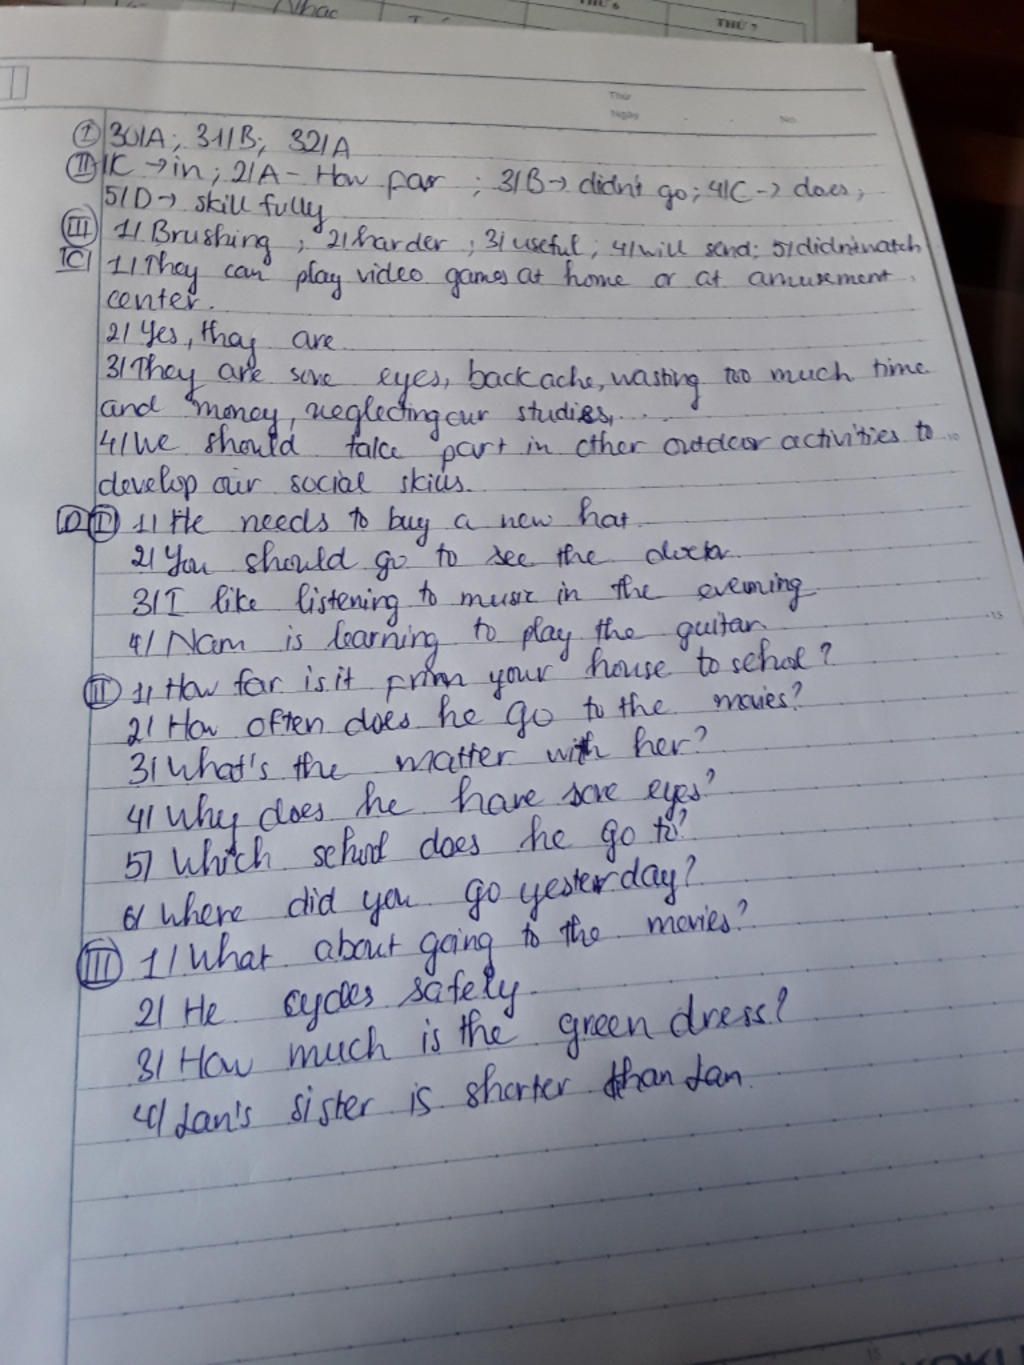 Nhạc
THỨ 6
THỨ 7
Thứ
Ngày
No.
I 30/A; 31/B; 32/A
II 1C → in; 2/A - How far; 3/B → didn't go; 4/C → does;
5/D → skillfully
III 1/ Brushing; 2/ harder; 3/ useful; 4/ will send; 5/ didn't watch
C 1/ They can play video games at home or at amusement
center.
2/ Yes, thay are
3/ They are sore eyes, backache, wasting too much time
and money, neglecting our studies,...
4/ We should take part in other outdoor activities to
develop our social skills.
D I 1/ He needs to buy a new hat
2/ You should go to see the doctor
3/ I like listening to music in the evening
4/ Nam is learning to play the guitar
II 1/ How far is it from your house to school?
2/ How often does he go to the movies?
3/ What's the matter with her?
4/ Why does he have sore eyes?
5/ Which school does he go to?
6/ Where did you go yesterday?
III 1/ What about going to the movies?
2/ He cycles safely.
3/ How much is the green dress?
4/ Lan's sister is shorter than Lan.
10
15